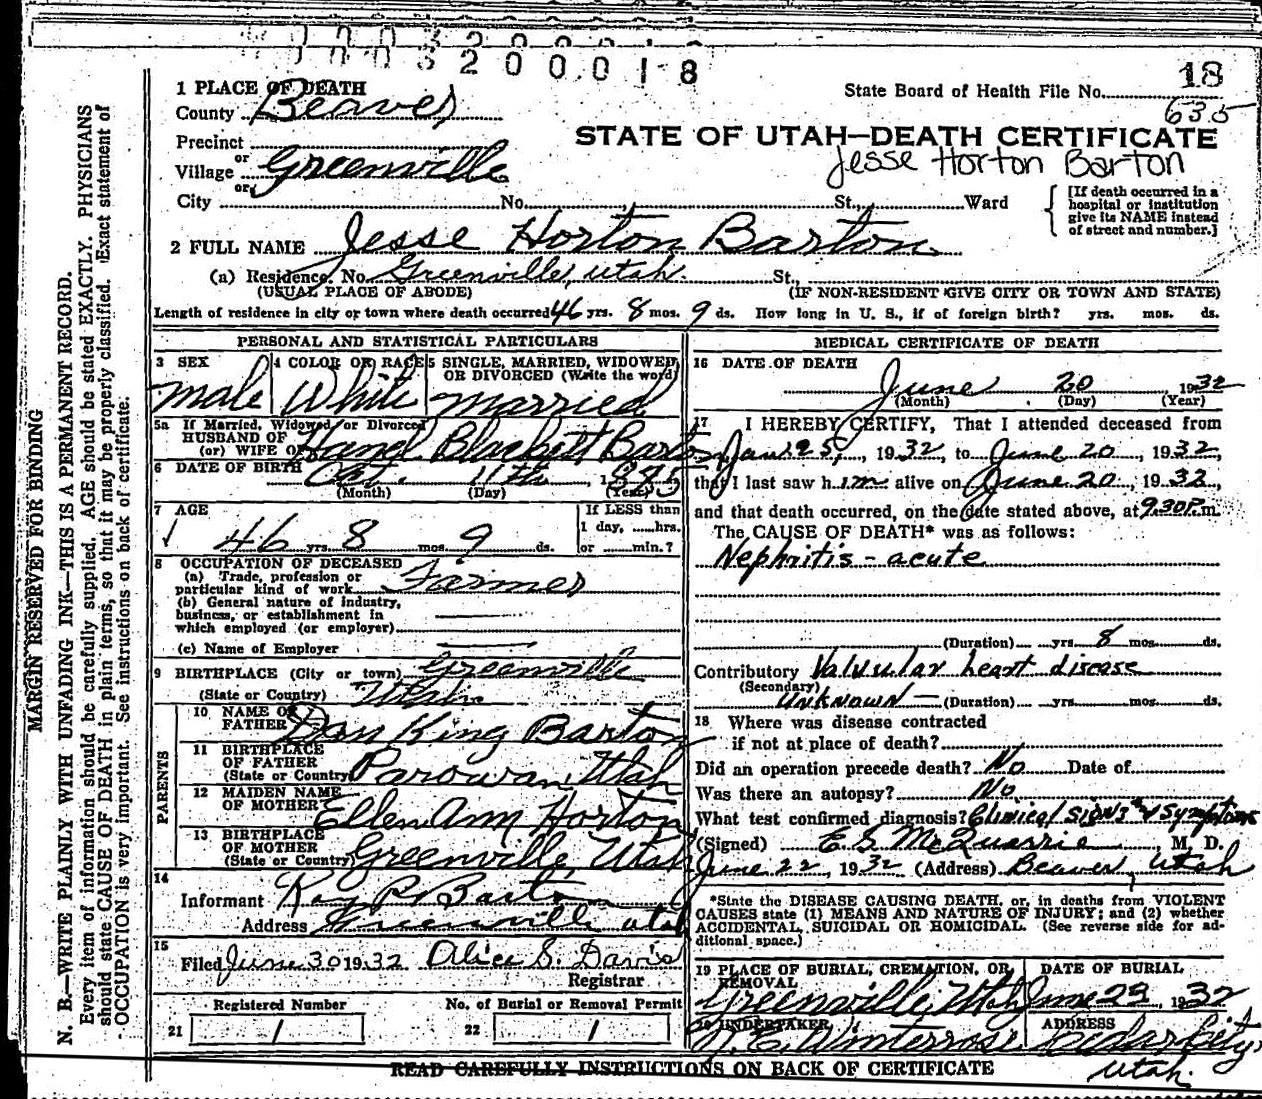 003200018
18
State Board of Health File No.
635
1 PLACE OF DEATH
County Beaver
STATE OF UTAH—DEATH CERTIFICATE
Jesse Horton Barton
Precinct
or
Village Greenville
or
City No. St., Ward
[If death occurred in a hospital or institution give its NAME instead of street and number.]
2 FULL NAME Jesse Horton Barton
(a) Residence. No. Greenville, Utah. St.,
(USUAL PLACE OF ABODE) (IF NON-RESIDENT GIVE CITY OR TOWN AND STATE)
Length of residence in city or town where death occurred 46 yrs. 8 mos. 9 ds. How long in U. S., if of foreign birth? yrs. mos. ds.
PERSONAL AND STATISTICAL PARTICULARS
3 SEX 4 COLOR OR RACE 5 SINGLE, MARRIED, WIDOWED, OR DIVORCED (Write the word)
Male White Married
5a If Married, Widowed, or Divorced
HUSBAND OF
(or) WIFE OF Blackett Barton
6 DATE OF BIRTH Oct. 11th, 1885
(Month) (Day) (Year)
7 AGE
46 yrs. 8 mos. 9 ds.
If LESS than 1 day, hrs. or min.?
8 OCCUPATION OF DECEASED
(a) Trade, profession or particular kind of work Farmer
(b) General nature of industry, business, or establishment in which employed (or employer)
(c) Name of Employer
9 BIRTHPLACE (City or town) Greenville
(State or Country) Utah
PARENTS
10 NAME OF FATHER Dan King Barton
11 BIRTHPLACE OF FATHER (State or Country) Parowan, Utah
12 MAIDEN NAME OF MOTHER Ellen Ann Horton
13 BIRTHPLACE OF MOTHER (State or Country) Greenville, Utah
14
Informant Ray R. Barton
Address Greenville Utah
15
Filed June 30 1932 Alice S. Davis
Registrar
Registered Number No. of Burial or Removal Permit
21 1 22 1
MEDICAL CERTIFICATE OF DEATH
16 DATE OF DEATH
June 20 1932
(Month) (Day) (Year)
17 I HEREBY CERTIFY, That I attended deceased from
Jan. 25, 1932, to June 20, 1932,
that I last saw him alive on June 20, 1932,
and that death occurred, on the date stated above, at 9.30P.m.
The CAUSE OF DEATH* was as follows:
Nephritis - acute
(Duration) yrs. 8 mos. ds.
Contributory Valvular heart disease
(Secondary)
Unknown — (Duration) yrs. mos. ds.
18 Where was disease contracted
if not at place of death?
Did an operation precede death? No Date of
Was there an autopsy? No.
What test confirmed diagnosis? Clinical signs & symptoms
(Signed) E. S. McQuarrie, M. D.
June 22, 1932 (Address) Beaver, Utah
*State the DISEASE CAUSING DEATH, or, in deaths from VIOLENT
CAUSES state (1) MEANS AND NATURE OF INJURY; and (2) whether
ACCIDENTAL, SUICIDAL OR HOMICIDAL. (See reverse side for additional space.)
19 PLACE OF BURIAL, CREMATION, OR REMOVAL DATE OF BURIAL
Greenville Utah June 22, 1932
20 UNDERTAKER ADDRESS
Winterrose Cedar City,
Utah.
READ CAREFULLY INSTRUCTIONS ON BACK OF CERTIFICATE
MARGIN RESERVED FOR BINDING
N. B.—WRITE PLAINLY WITH UNFADING INK—THIS IS A PERMANENT RECORD.
Every item of information should be carefully supplied. AGE should be stated EXACTLY. PHYSICIANS
should state CAUSE OF DEATH in plain terms, so that it may be properly classified. Exact statement of
OCCUPATION is very important. See instructions on back of certificate.